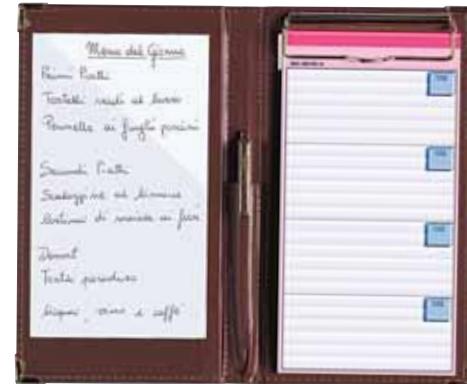 Menu del Giorno
Primi Piatti
Tortelli verdi al burro
Pennette ai funghi porcini
Secondi Piatti
Scaloppine al limone
di maiale ai ferri
Dessert
Torta paradiso
Acqua, vino e caffè